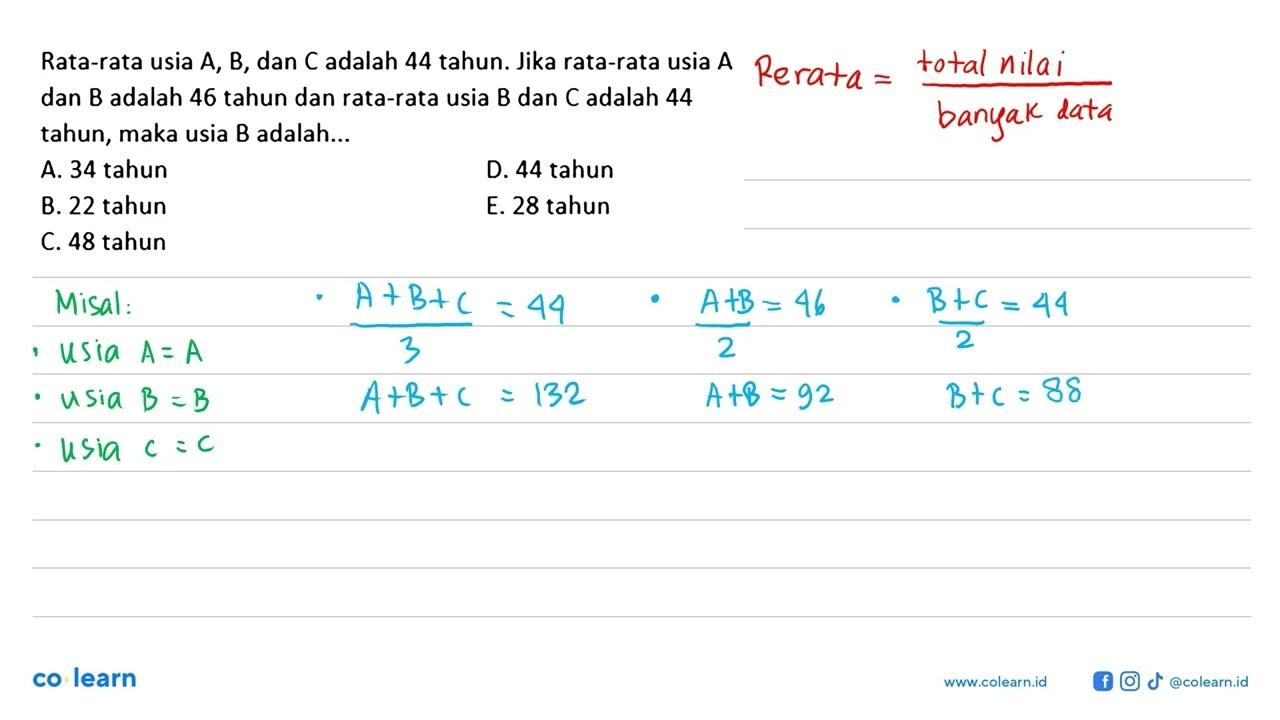 Rata-rata usia A, B, dan C adalah 44 tahun. Jika rata-rata usia A
dan B adalah 46 tahun dan rata-rata usia B dan C adalah 44
tahun, maka usia B adalah...
A. 34 tahun
D. 44 tahun
B. 22 tahun
E. 28 tahun
C. 48 tahun
Rerata = total nilai / banyak data
Misal:
• usia A = A
• usia B = B
• usia C = C
• A+B+C / 3 = 44
A+B+C = 132
• A+B / 2 = 46
A+B = 92
• B+C / 2 = 44
B+C = 88
co learn
www.colearn.id
@colearn.id